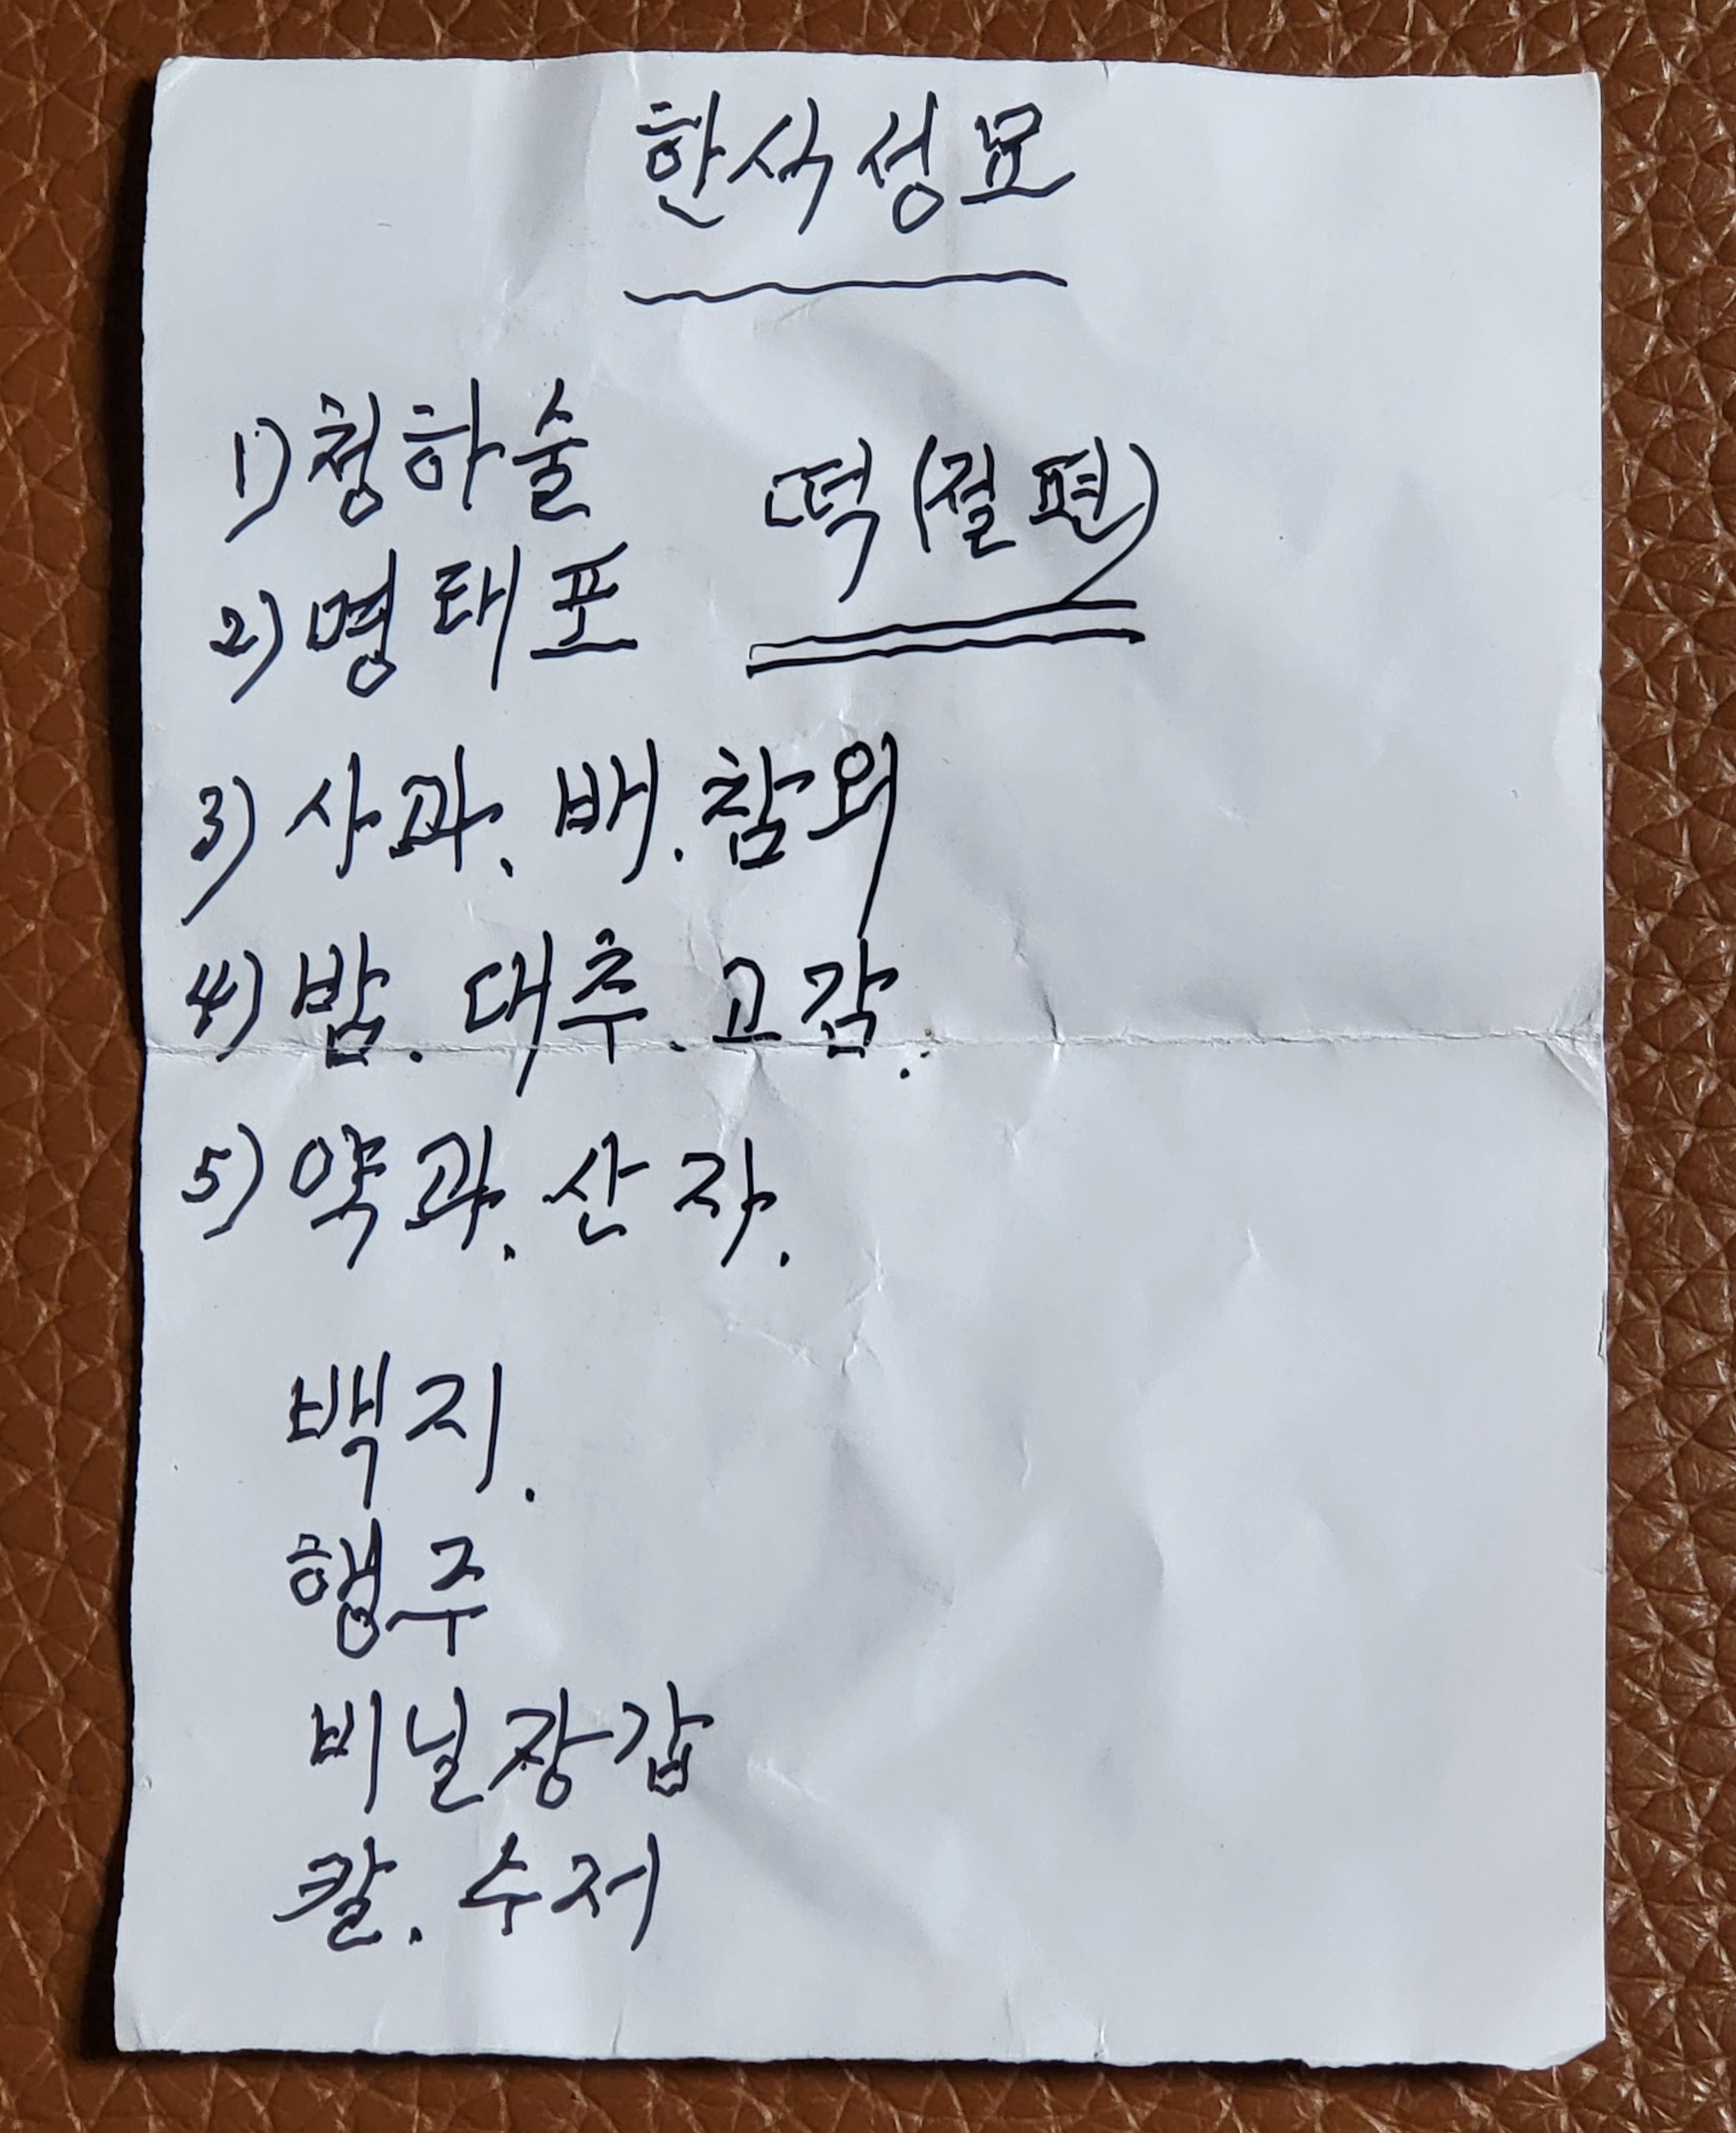 한식성묘
1) 청하술
떡(절편)
2) 명태포
3) 사과. 배. 참외
4) 밤. 대추. 고감.
5) 약과. 산자.
백지.
행주
비닐장갑
칼. 수저